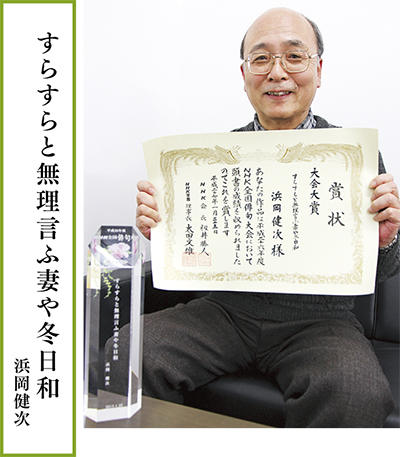 すらすらと無理言ふ妻や冬日和
浜岡健次
賞状
大会大賞
すらすらと無理言ふ妻や冬日和
浜岡健次様
あなたの作品は平成二十六年度
NHK全国俳句大会において
頭書の成績を収められました
のでこれを賞します
平成二十七年一月二十五日
NHK会長 籾井勝人
NHK学園 理事長 太田文雄
すらすらと無理言ふ妻や冬日和
浜岡 健次